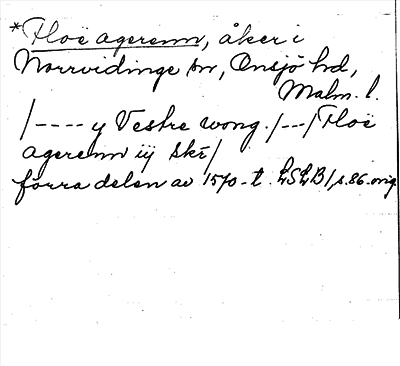 *Floë agerenn, åker i
Norrvidinge sn, Onsjö hd,
Malm. l.
/---- y Vestre wong. /---/ Floë
agerenn iij skr/
förra delen av 1570-t. LSLB 1, s. 86. orig.